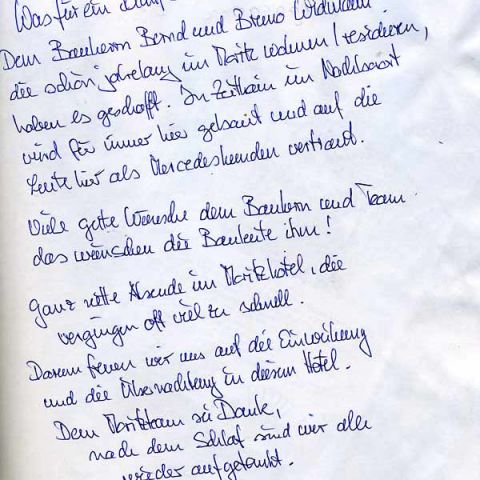 Was für ein
Dem Bauherrn Bernd und Bruno Widmann
die schon jahrelang im Moritz wohnen / residieren,
haben es geschafft. In Zeithain im Nachbarort
wird für immer hier gebaut und auf die
Leute hier als Mercedeskunden vertraut.
Viele gute Wünsche dem Bauherrn und Team
das wünschen die Bauleute ihm!
Ganz nette Abende im Moritzhotel, die
vergingen oft viel zu schnell.
Darum freuen wir uns auf die Einweihung
und die Übernachtung in diesem Hotel.
Dem Moritzteam sei Dank,
nach dem Schlaf sind wir alle
wieder aufgetankt.